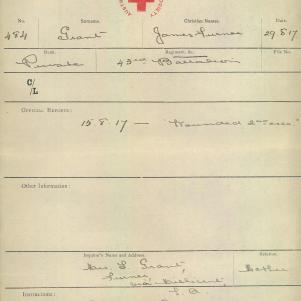 No. Surname. Christian Names. Date.
484 Grant James Furner 29.8.17
Rank. Regiment, &c. File No.
Private 43rd Battalion
C/
/L
Official Reports:
15.8.17 — "Wounded 2nd occ."
Other Information:
Inquirer's Name and Address. Relation.
Mrs. S. Grant, Mother
Furner,
via Millicent,
S. A.
Instructions: